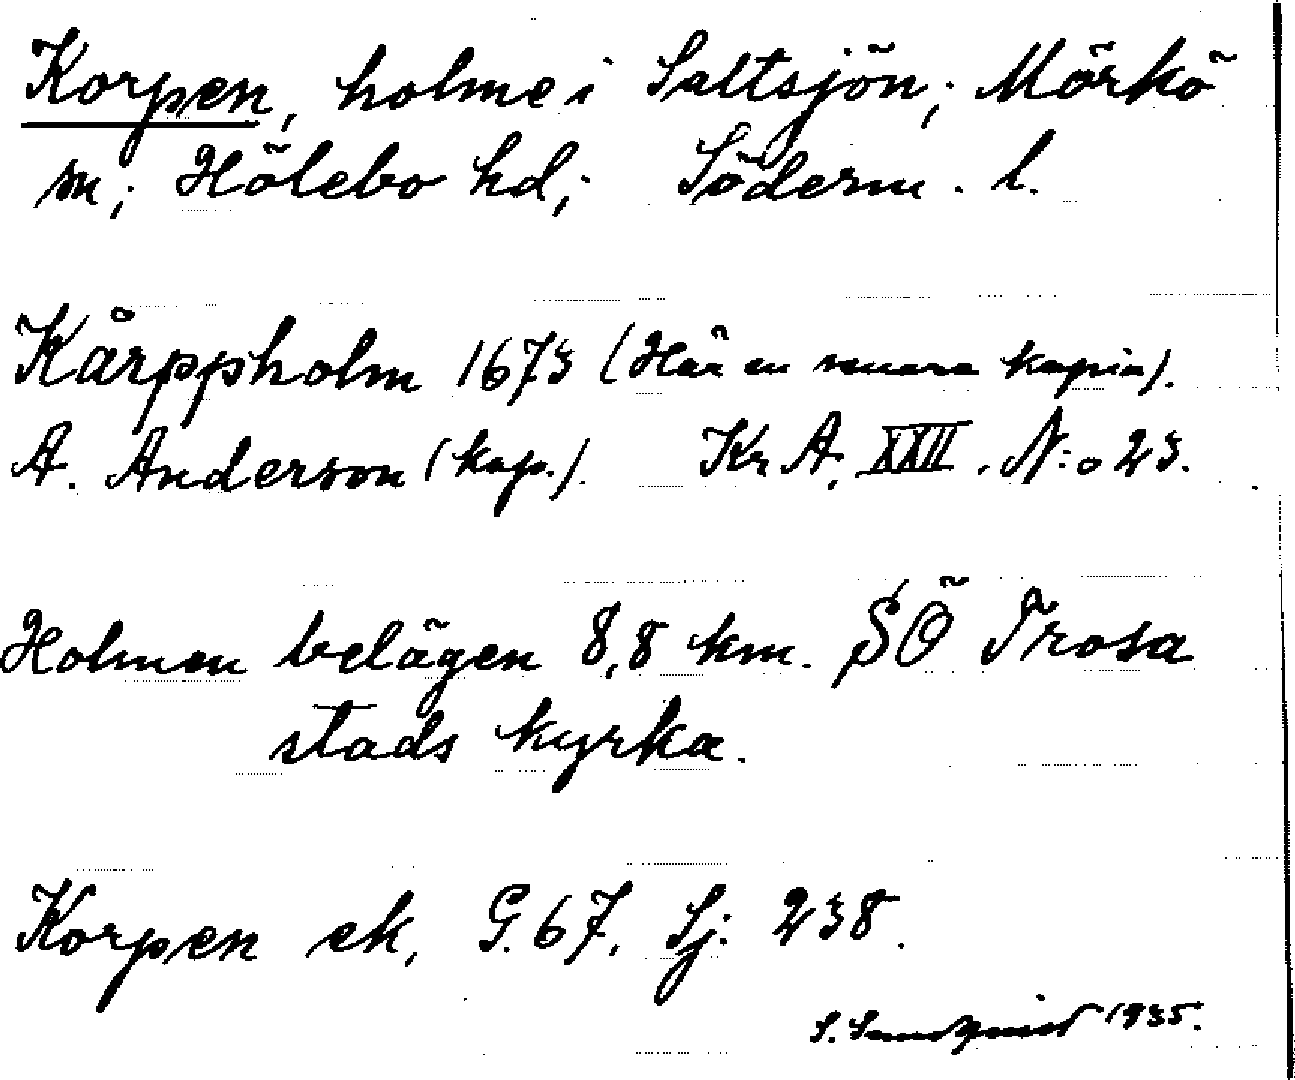 Korpen, holme i Saltsjön; Mörkö
sn; Hölebo hd; Söderm. l.
Kårppholm 1673 (Här en senare kopia).
A. Anderson (kop.). Kr. A. XXII. N:o 23.
Holmen belägen 8,8 km. SÖ Trosa
stads kyrka.
Korpen ek. G. 67. Sj: 238.
S. Sundquist 1935.